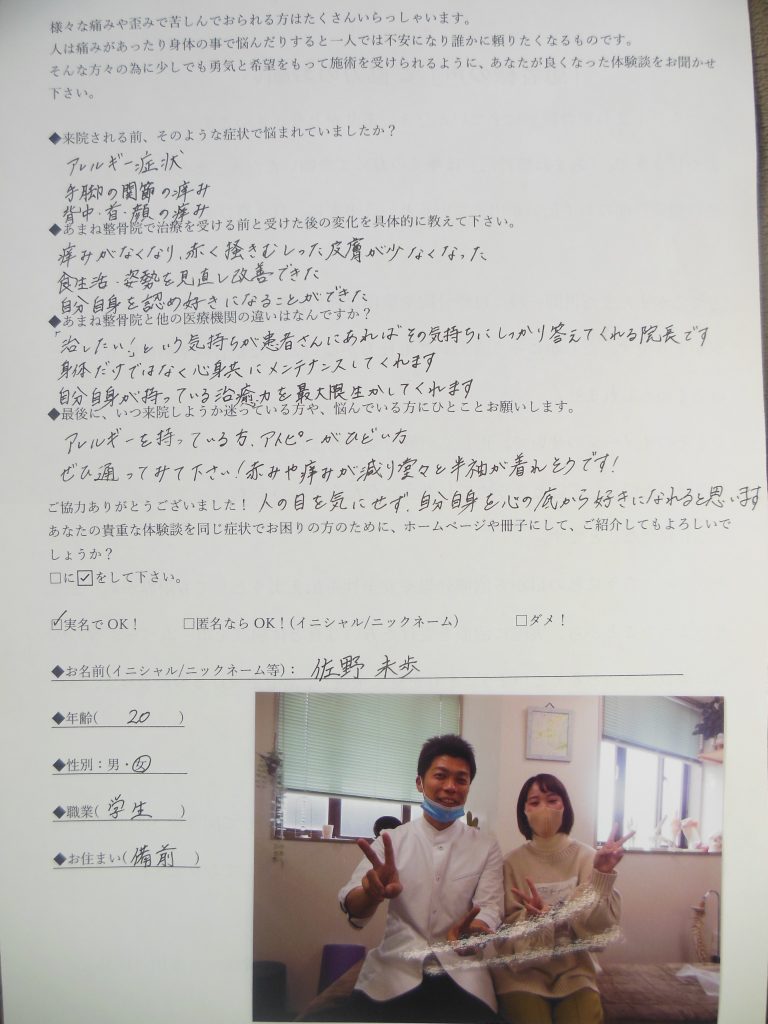 様々な痛みや歪みで苦しんでおられる方はたくさんいらっしゃいます。
人は痛みがあったり身体の事で悩んだりすると一人では不安になり誰かに頼りたくなるものです。
そんな方々の為に少しでも勇気と希望をもって施術を受けられるように、あなたが良くなった体験談をお聞かせ
下さい。
◆来院される前、そのような症状で悩まれていましたか？
アレルギー症状
手脚の関節の痛み
背中・首・顔の痛み
◆あまね整骨院で治療を受ける前と受けた後の変化を具体的に教えて下さい。
痛みがなくなり、赤く掻きむしった皮膚が少なくなった
食生活・姿勢を見直し改善できた
自分自身を認め好きになることができた
◆あまね整骨院と他の医療機関の違いはなんですか？
「治したい！」という気持ちが患者さんにあればその気持ちにしっかり答えてくれる院長です
身体だけではなく心身共にメンテナンスしてくれます
自分自身が持っている治癒力を最大限生かしてくれます
◆最後に、いつ来院しようか迷っている方や、悩んでいる方にひとことお願いします。
アレルギーを持っている方、アトピーがひどい方
ぜひ通ってみて下さい！赤みや痒みが減り堂々と半袖が着れそうです！
ご協力ありがとうございました！ 人の目を気にせず、自分自身を心の底から好きになれると思います
あなたの貴重な体験談を同じ症状でお困りの方のために、ホームページや冊子にして、ご紹介してもよろしいで
しょうか？
□に☑をして下さい。
☑実名でOK！ □匿名ならOK！(イニシャル/ニックネーム) □ダメ！
◆お名前(イニシャル/ニックネーム等)： 佐野 未歩
◆年齢( 20 )
◆性別：男・女
◆職業( 学生 )
◆お住まい( 備前 )